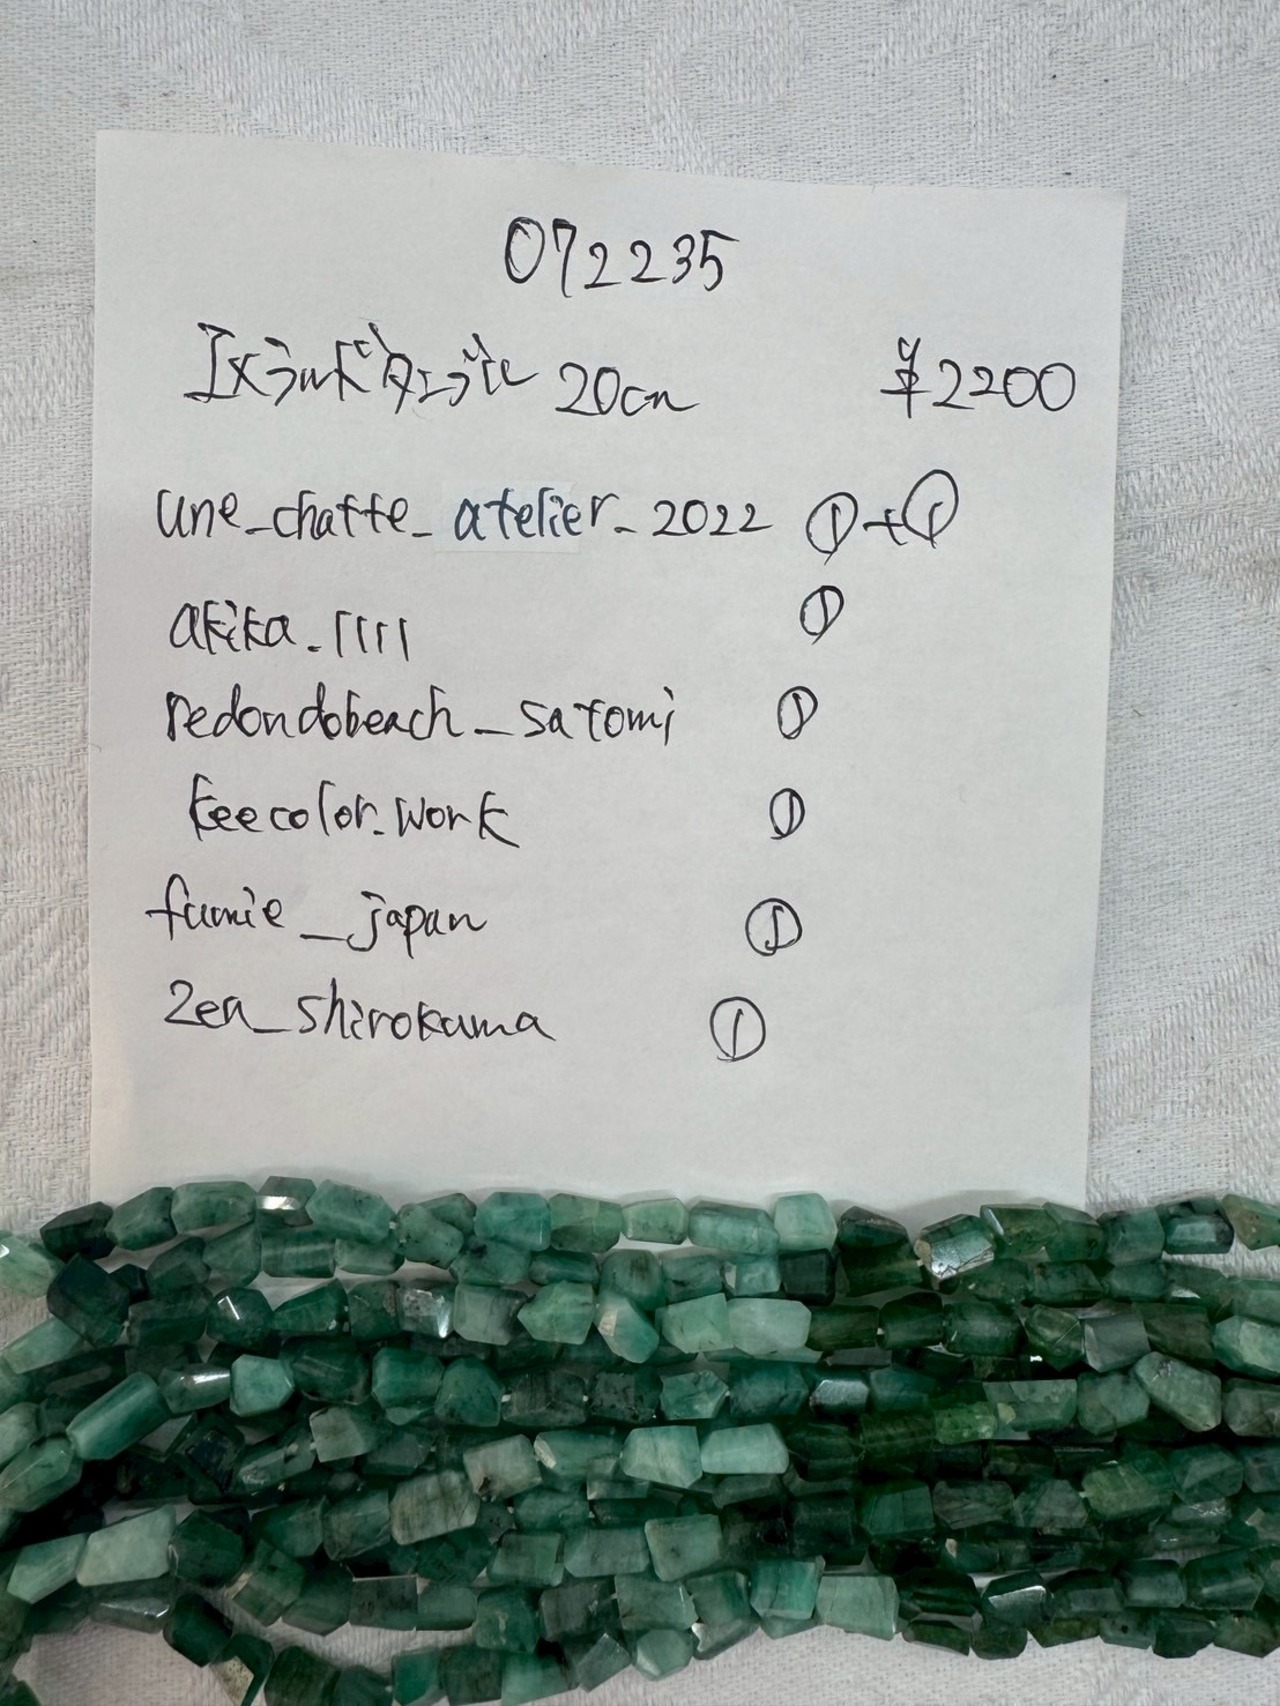 072235
エメラルドタンブル 20cm ¥2200
une_chatte_atelier_2022 ①+①
akika.1111 ①
redondobeach_satomi ①
keecolor.work ①
fumie_japan ①
zen_shirokuma ①